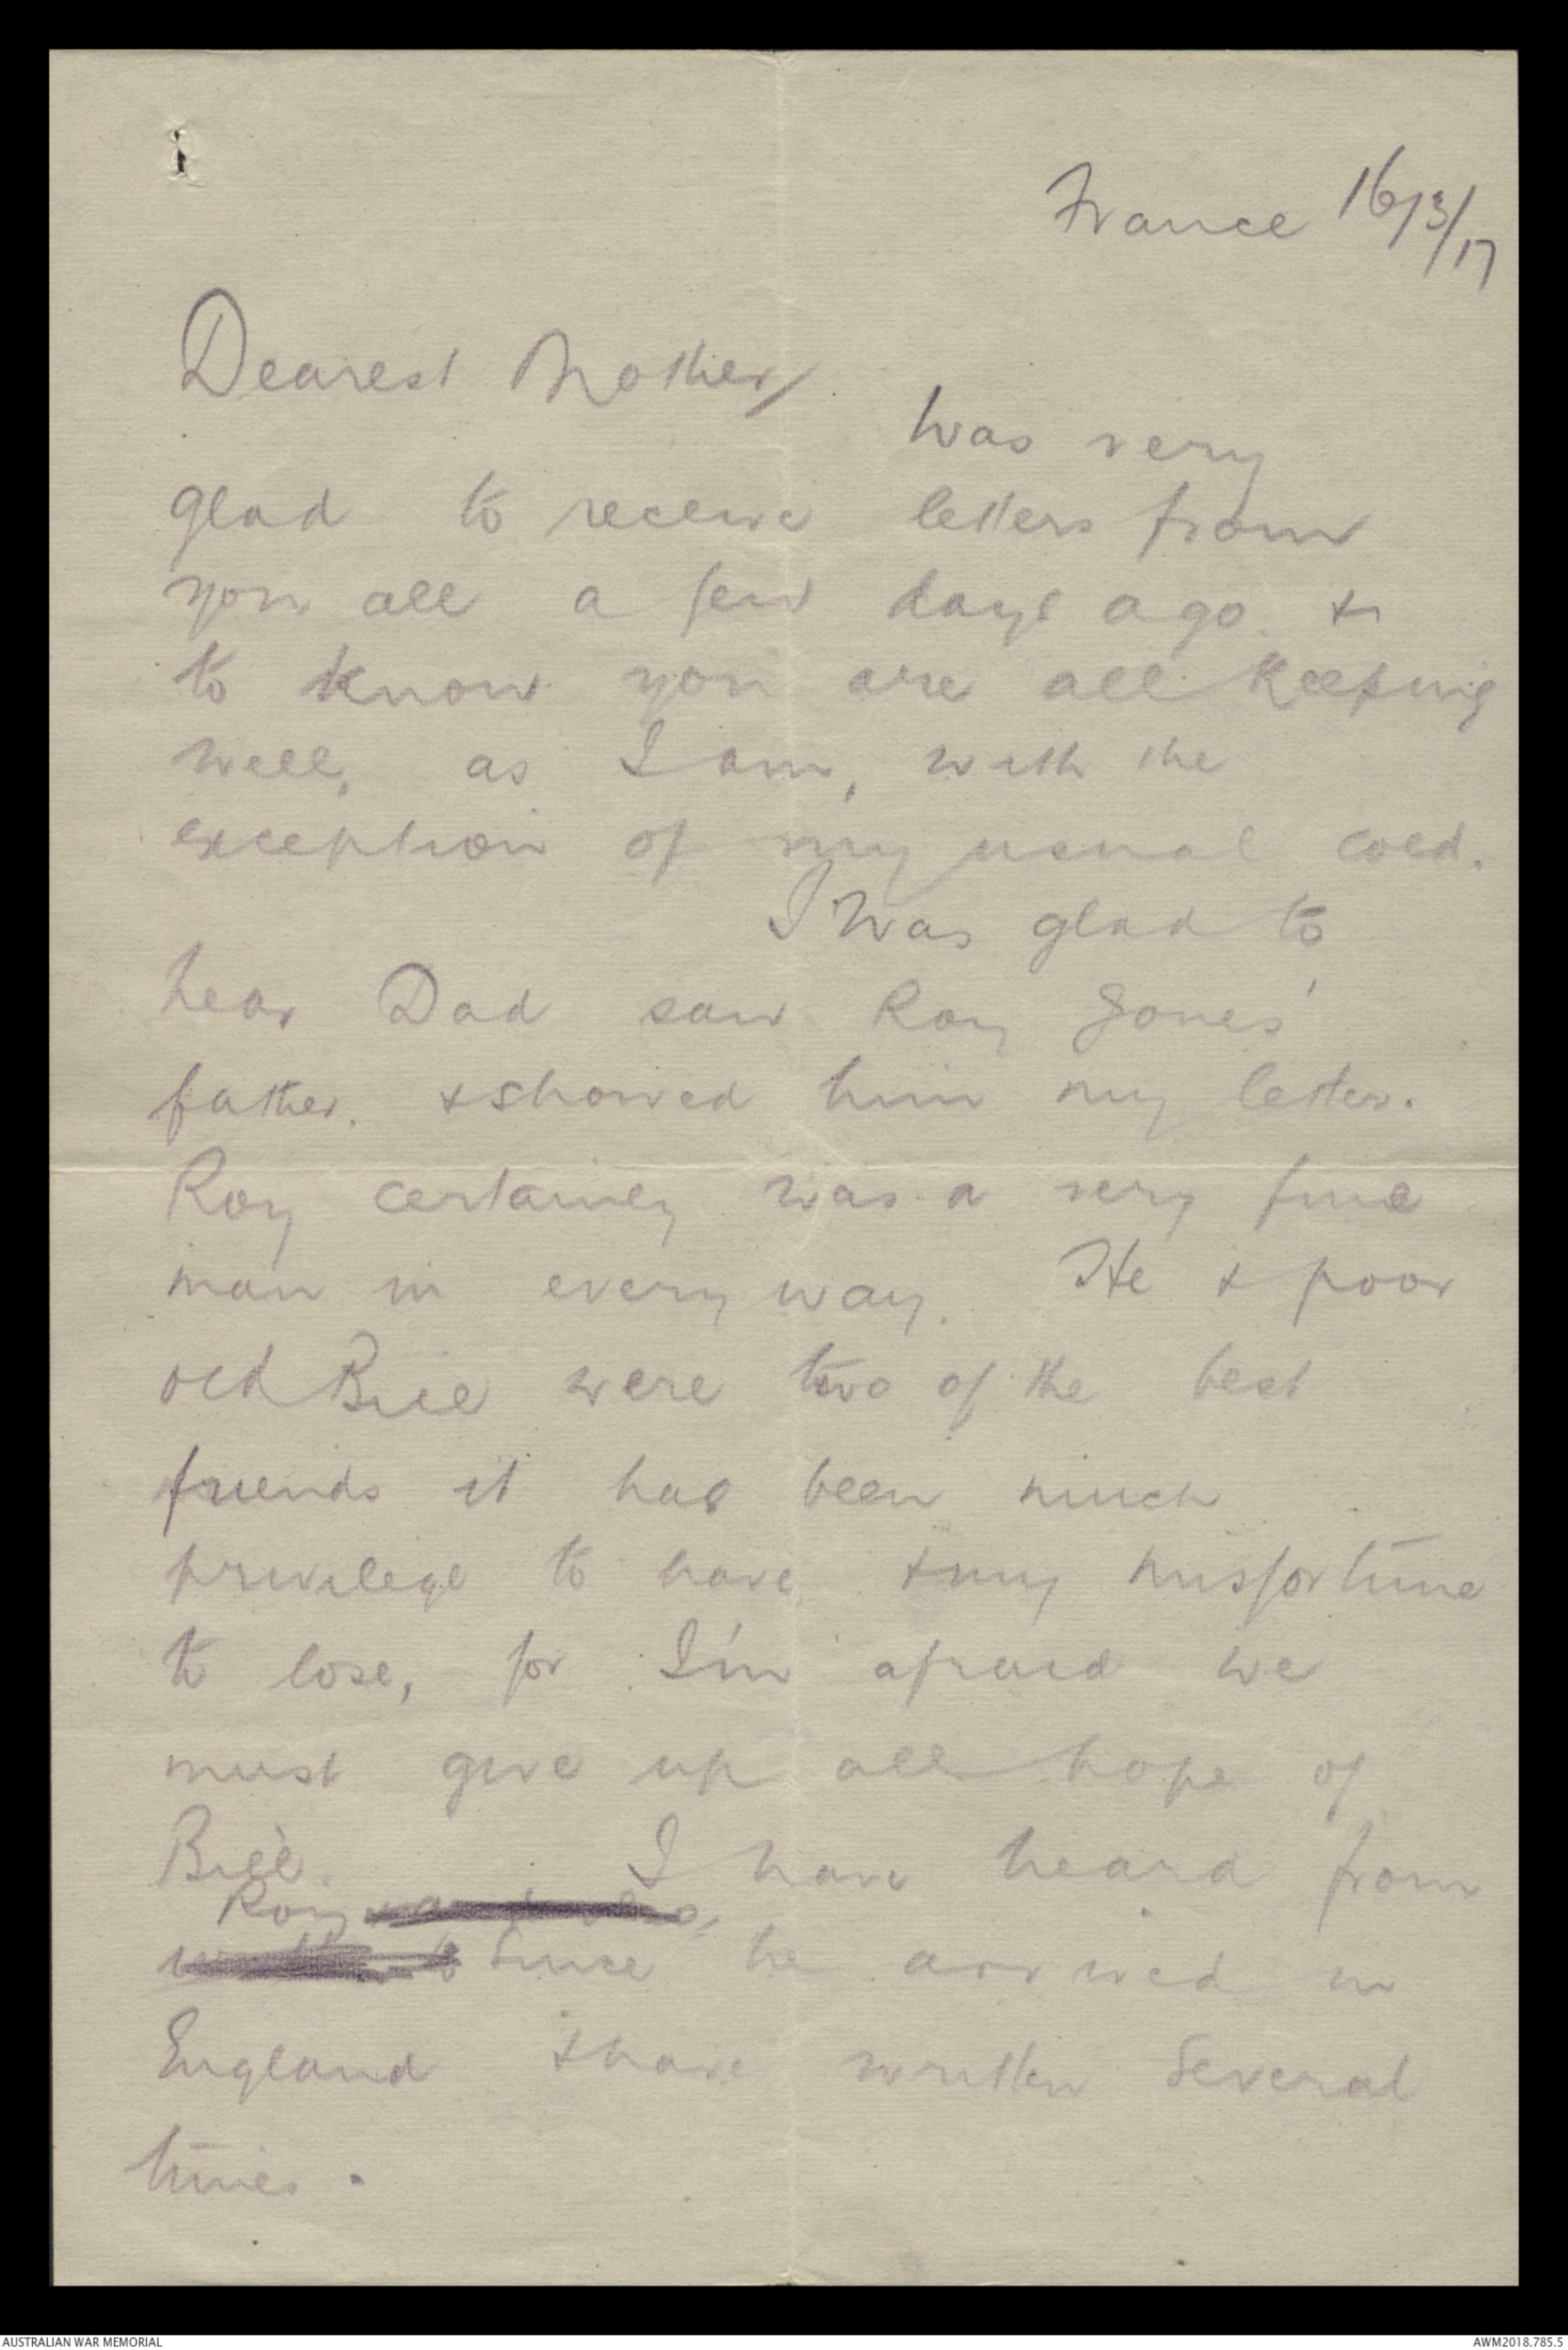 France 16/3/17
Dearest Mother/
Was very
glad to receive letters from
you all a few days ago. &
to know you are all keeping
well, as I am, with the
exception of my usual cold.
I was glad to
hear Dad saw Roy Jones'
father. & showed him my letter.
Roy certainly was a very fine
man in every way. He & poor
old Bill were two of the best
friends it has been much
privilege to have, & my misfortune
to lose, for I'm afraid we
must give up all hope of
Bill. I have heard from
Roy
since he arrived in
England & have written several
times.
AUSTRALIAN WAR MEMORIAL
AWM2018.785.5